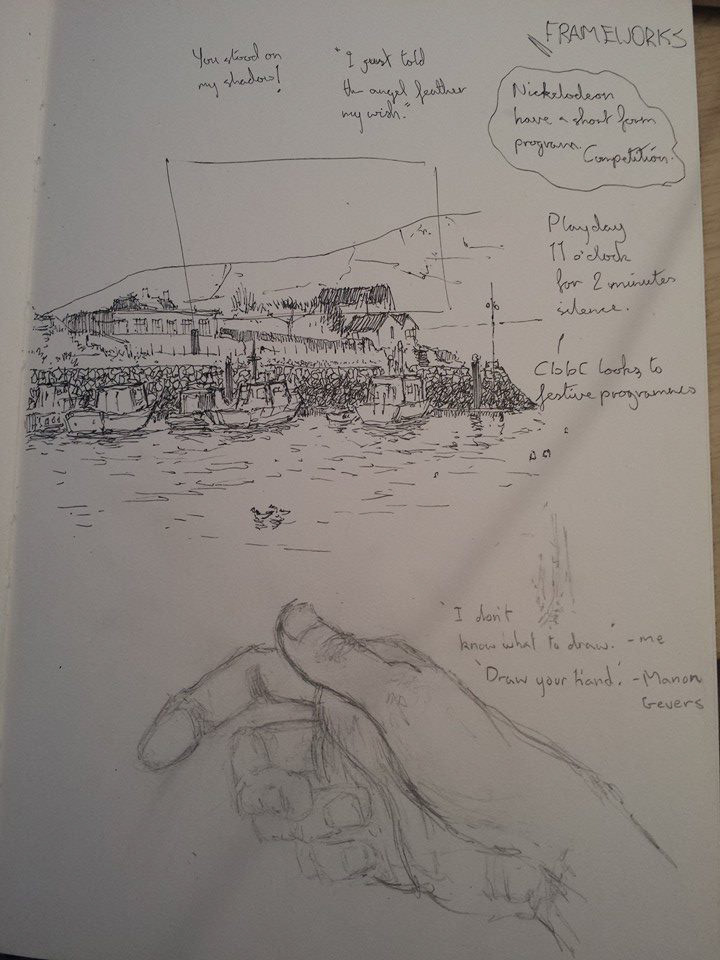 You stood on
my shadow!
"I just told
the angel feather
my wish."
FRAMEWORKS
Nickelodeon
have a short form
program.
Competition.
Playday
11 o'clock
for 2 minutes
silence.
CbbC looks to
festive programmes
"I don't
know what to draw." - me
"Draw your hand." - Manon
Gevers